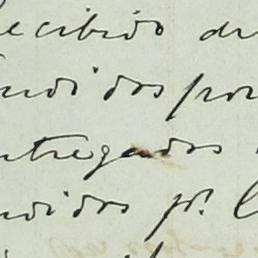 ecibido de
ndidos por
ntregados
ndidos pr.